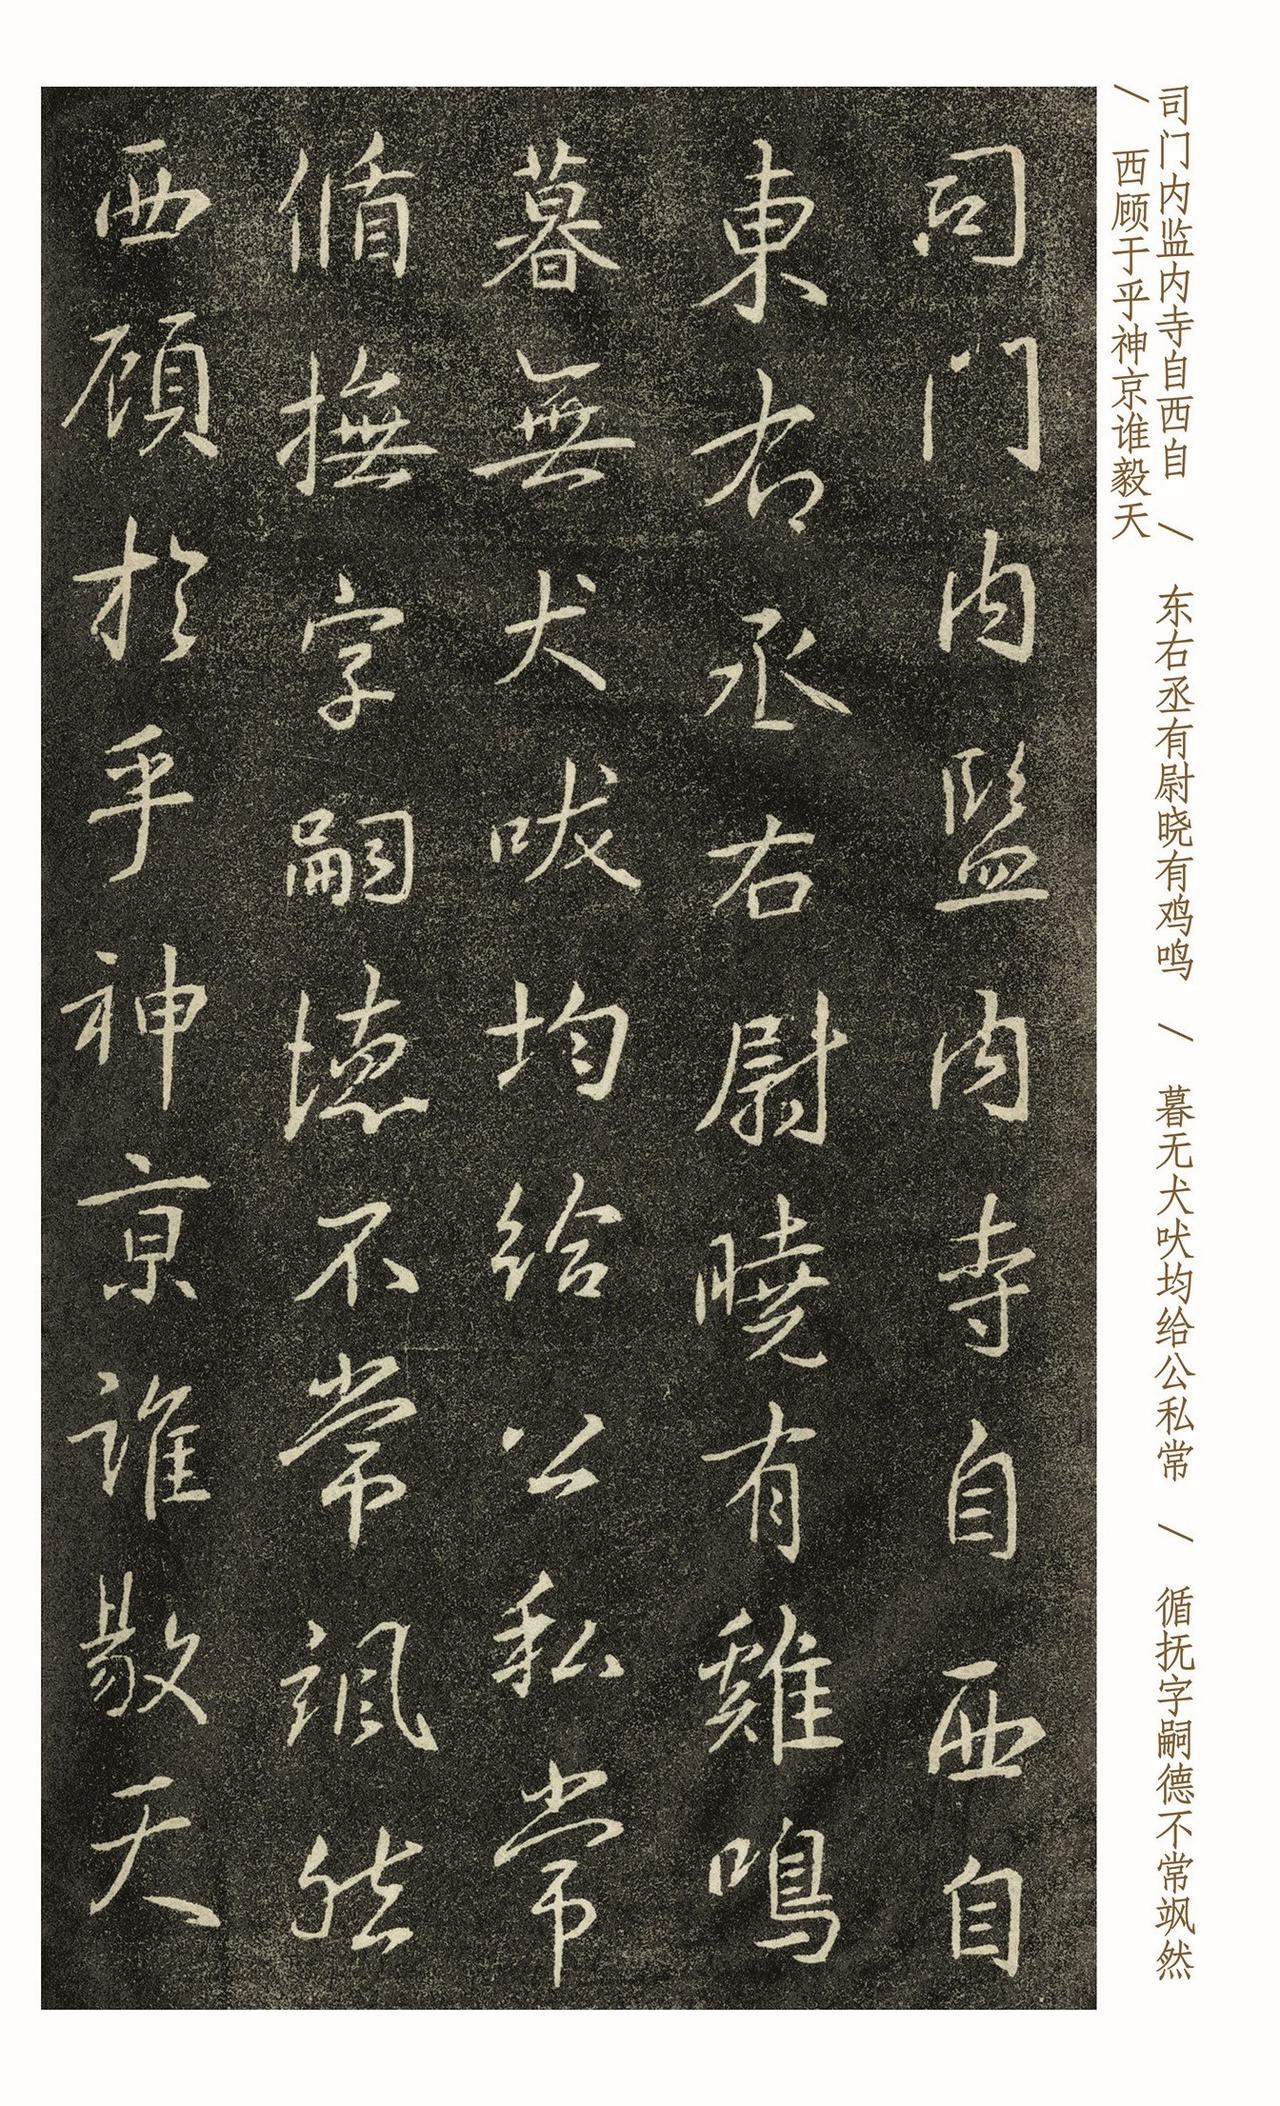 司门内监内寺自西自 / 东右丞有尉晓有鸡鸣 / 暮无犬吠均给公私常 / 循抚字嗣德不常飒然
/ 西顾于乎神京谁毅天
司門内監内寺自西自
東右丞右尉曉有雞鳴
暮無犬吠均給公私常
循撫字嗣德不常颯然
西顧於乎神京誰敢天